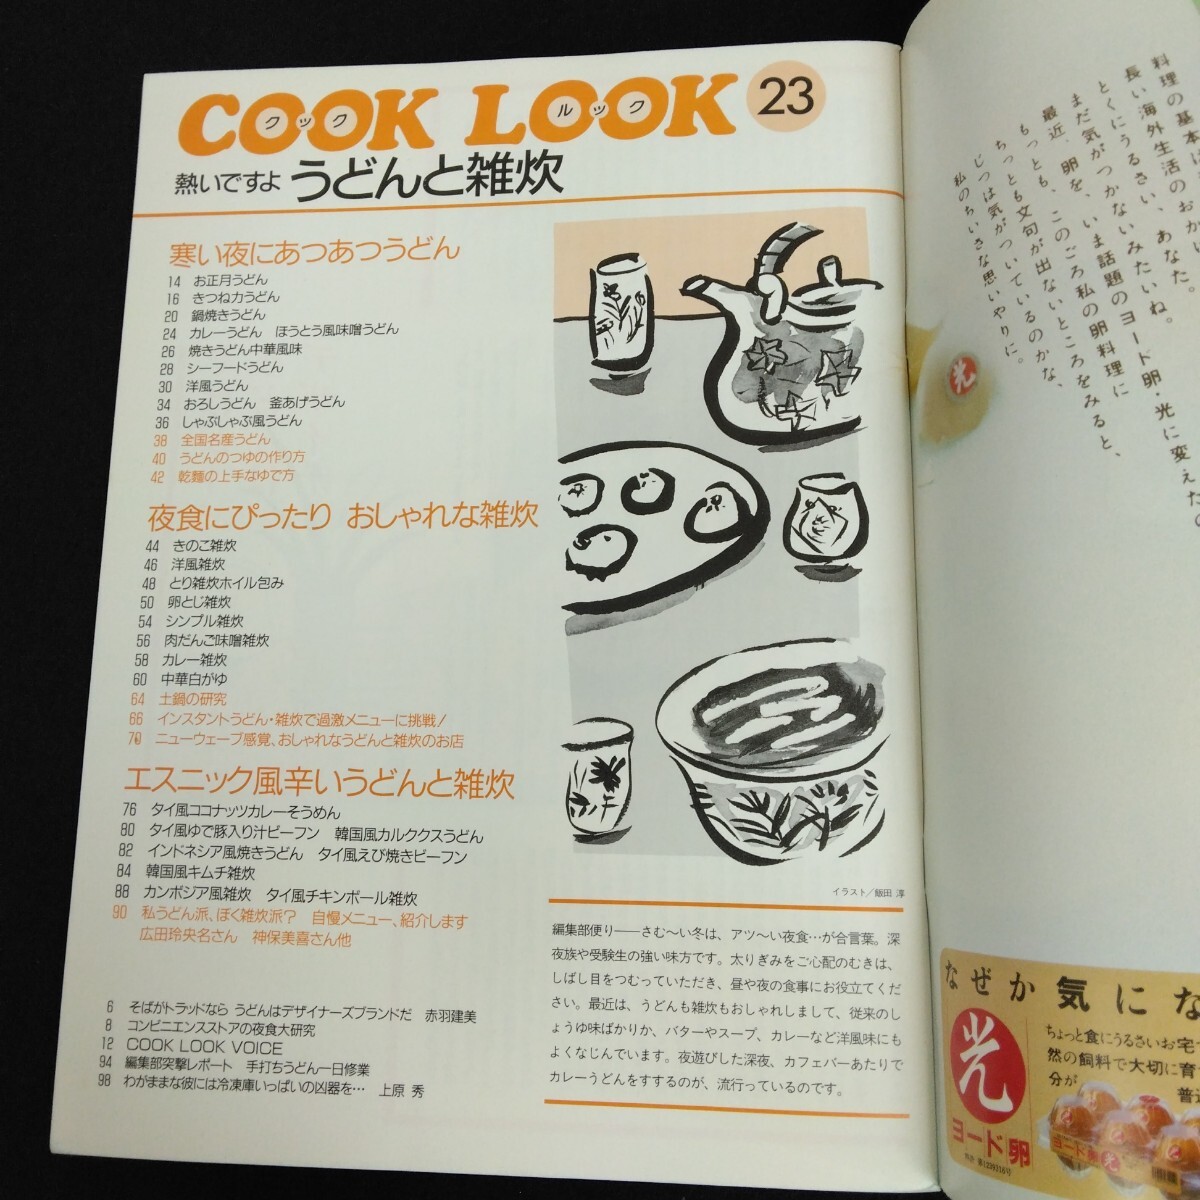 COOK LOOK 23
クック ルック
熱いですよ うどんと雑炊
寒い夜にあつあつうどん
14 お正月うどん
16 きつね力うどん
20 鍋焼きうどん
24 カレーうどん ほうとう風味噌うどん
26 焼きうどん中華風味
28 シーフードうどん
30 洋風うどん
34 おろしうどん 釜あげうどん
36 しゃぶしゃぶ風うどん
38 全国名産うどん
40 うどんのつゆの作り方
42 乾麺の上手なゆで方
夜食にぴったり おしゃれな雑炊
44 きのこ雑炊
46 洋風雑炊
48 とり雑炊ホイル包み
50 卵とじ雑炊
54 シンプル雑炊
56 肉だんご味噌雑炊
58 カレー雑炊
60 中華白がゆ
64 土鍋の研究
66 インスタントうどん・雑炊で過激メニューに挑戦!
70 ニューウェーブ感覚、おしゃれなうどんと雑炊のお店
エスニック風辛いうどんと雑炊
76 タイ風ココナッツカレーそうめん
80 タイ風ゆで豚入り汁ビーフン 韓国風カルククスうどん
82 インドネシア風焼きうどん タイ風えび焼きビーフン
84 韓国風キムチ雑炊
88 カンボジア風雑炊 タイ風チキンボール雑炊
90 私うどん派、ぼく雑炊派? 自慢メニュー、紹介します
広田玲央名さん 神保美喜さん他
6 そばがトラッドなら うどんはデザイナーズブランドだ 赤羽建美
8 コンビニエンスストアの夜食大研究
12 COOK LOOK VOICE
94 編集部突撃レポート 手打ちうどん一日修業
98 わがままな彼には冷凍庫いっぱいの凶器を… 上原 秀
イラスト/飯田 淳
編集部便り――さむ〜い冬は、アツ〜い夜食…が合言葉。深
夜族や受験生の強い味方です。太りぎみをご心配のむきは、
しばし目をつむっていただき、昼や夜の食事にお役立てくだ
さい。最近は、うどんも雑炊もおしゃれしまして、従来のし
ょうゆ味ばかりか、バターやスープ、カレーなど洋風味にも
よくなじんでいます。夜遊びした深夜、カフェバーあたりで
カレーうどんをすするのが、流行っているのです。
料理の基本は
長い海外生活のおかげ
とくにうるさい、あなた。
まだ気がつかないみたいね。
最近、卵を、いま話題のヨード卵・光に変えた
もっとも、このごろ私の卵料理に
ちっとも文句が出ないところをみると、
じつは気がついているのかな、
私のちいさな思いやりに。
光
なぜか気にな
ちょっと食にうるさいお宅
然の飼料で大切に育
分が 普
光
ヨード卵
ヨード卵 光